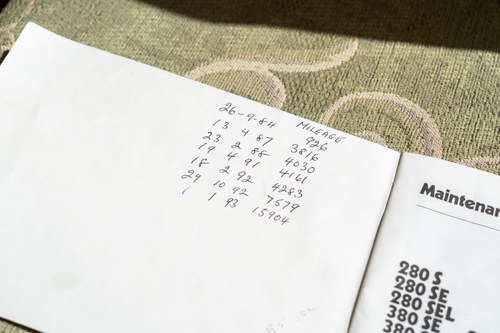 MILEAGE
26-9-84 926
13 4 87 3816
23 2 88 4030
19 4 91 4161
18 2 92 4283
29 10 92 7579
1 1 93 15904
Maintenan
280 S
280 SE
280 SEL
380 SE